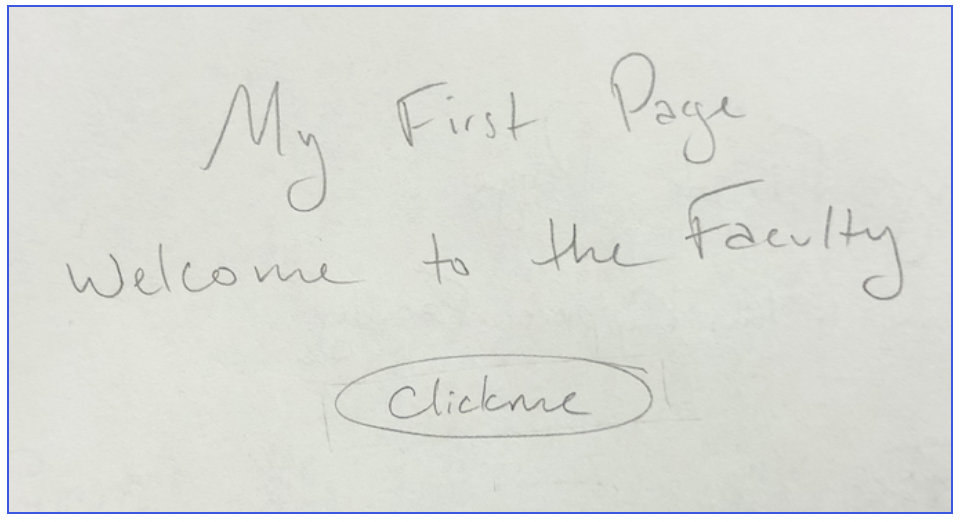 My First Page
Welcome to the Faculty
Clickme